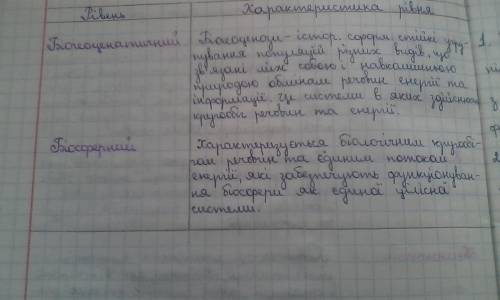 Рівень Характеристика рівня
Біогеоценатичний Біогеоценози - істор. сформ. стійкі угру-
пування популяцій різних видів, що
зв'язані між собою і навколишньою
природою обміном речовин енергії та
інформації. Це системи в яких здійснюють
кругообіг речовин та енергії.
Біосферний Характеризується біологічним кругообі-
гом речовин та єдиним потоком
енергії, які забезпечують функціонуван-
ня біосфери як єдиної цілісної
системи.
1.
2